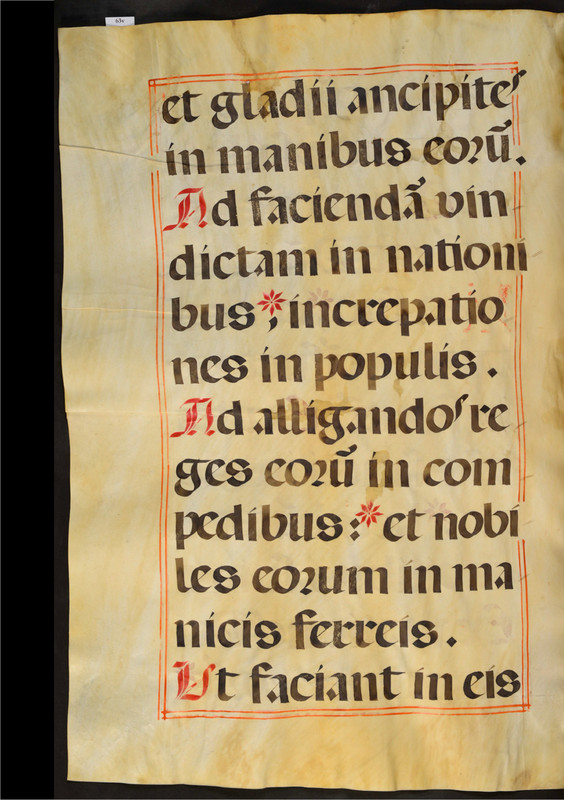 et gladii ancipites
in manibus eorū.
Ad faciendā vin
dictam in nationi
bus; * increpatio
nes in populis.
Ad alligandos re
ges eorū in com
pedibus: * et nobi
les eorum in ma
nicis ferreis.
Ut faciant in eis